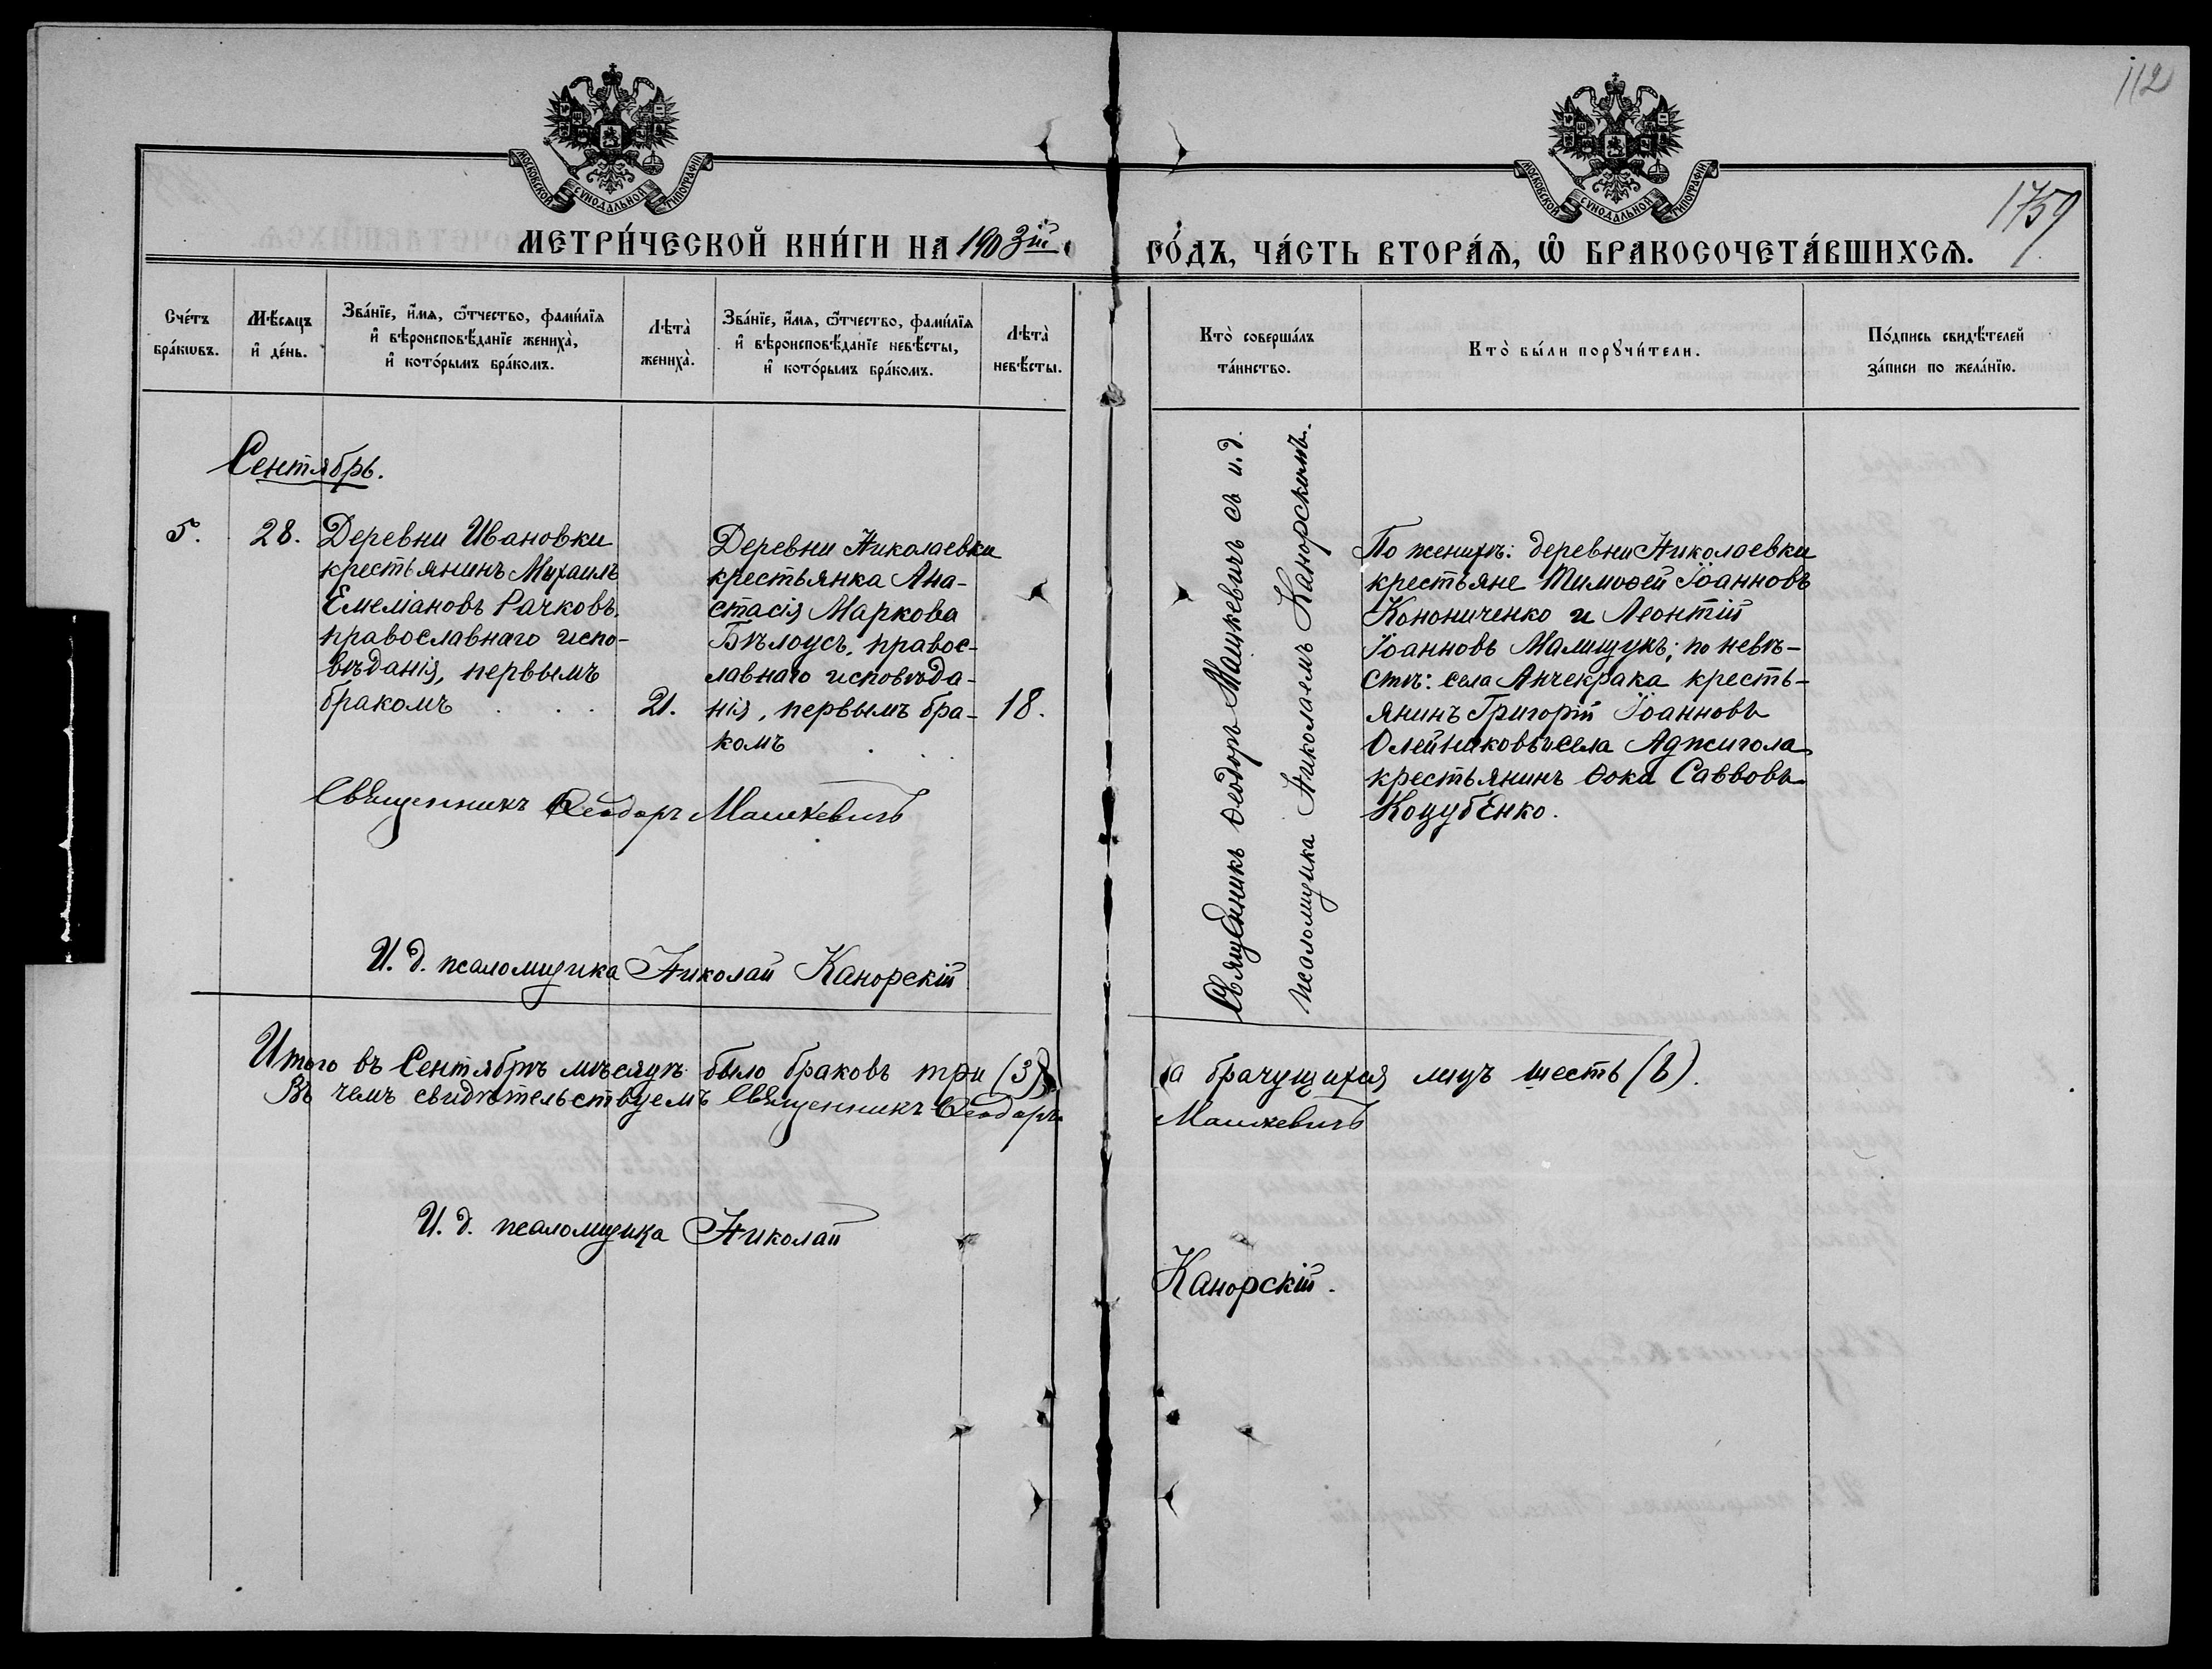 112
1759
МОСКОВСКОЙ СѴНОДАЛЬНОЙ ТИПОГРАФІИ
МОСКОВСКОЙ СѴНОДАЛЬНОЙ ТИПОГРАФІИ
МЕТРИ́ЧЕСКОЙ КНИ́ГИ НА 1903й
ГО́ДЪ, ЧА́СТЬ ВТОРА́Ѧ, Ѽ БРАКОСОЧЕТА́ВШИХСѦ.
Сче́тъ бра́кѡвъ.
Мѣ́сѧцъ и҆ де́нь.
Зва́нїе, и҆́мѧ, ѻ҆́тчество, фами́лїѧ и҆ вѣроисповѣ́данїе жениха̀, и҆ кото́рымъ бра́комъ.
Лѣта̀ жениха̀.
Зва́нїе, и҆́мѧ, ѻ҆́тчество, фами́лїѧ и҆ вѣроисповѣ́данїе невѣ́сты, и҆ кото́рымъ бра́комъ.
Лѣта̀ невѣ́сты.
Кто̀ соверша́лъ та́инство.
Кто̀ бы́ли порꙋчи́тели.
По́дпись свидѣ́телей за́писи по жела́нїю.
Сентябрь.
5.
28.
Деревни Ивановки
крестьянинъ Михаилъ
Емеліановъ Рачковъ,
православнаго испо-
вѣданія, первымъ
бракомъ . . .
21.
Деревни Николаевки
крестьянка Ана-
стасія Маркова
Бѣлоусъ, правос-
лавнаго исповѣда-
нія, первымъ бра-
комъ . . .
18.
Священникъ Ѳеодоръ Машкевичъ съ и. д.
псаломщика Николаемъ Канорскимъ.
По женихѣ: деревни Николаевки
крестьяне Тимоѳей Іоанновъ
Конониченко и Леонтій
Іоанновъ Малищукъ; по невѣ-
стѣ: села Анчекрака кресть-
янинъ Григорій Іоанновъ
Олейниковъ и села Аджигола
крестьянинъ Ѳока Саввовъ
Коцубенко.
Священникъ Ѳеодоръ Машкевичъ
И. д. псаломщика Николай Канорскій
Итого въ Сентябрѣ мѣсяцѣ было браковъ три (3),
а брачущихся лицъ шесть (6).
Въ чемъ свидѣтельствуемъ Священникъ Ѳеодоръ
Машкевичъ
И. д. псаломщика Николай
Канорскій.